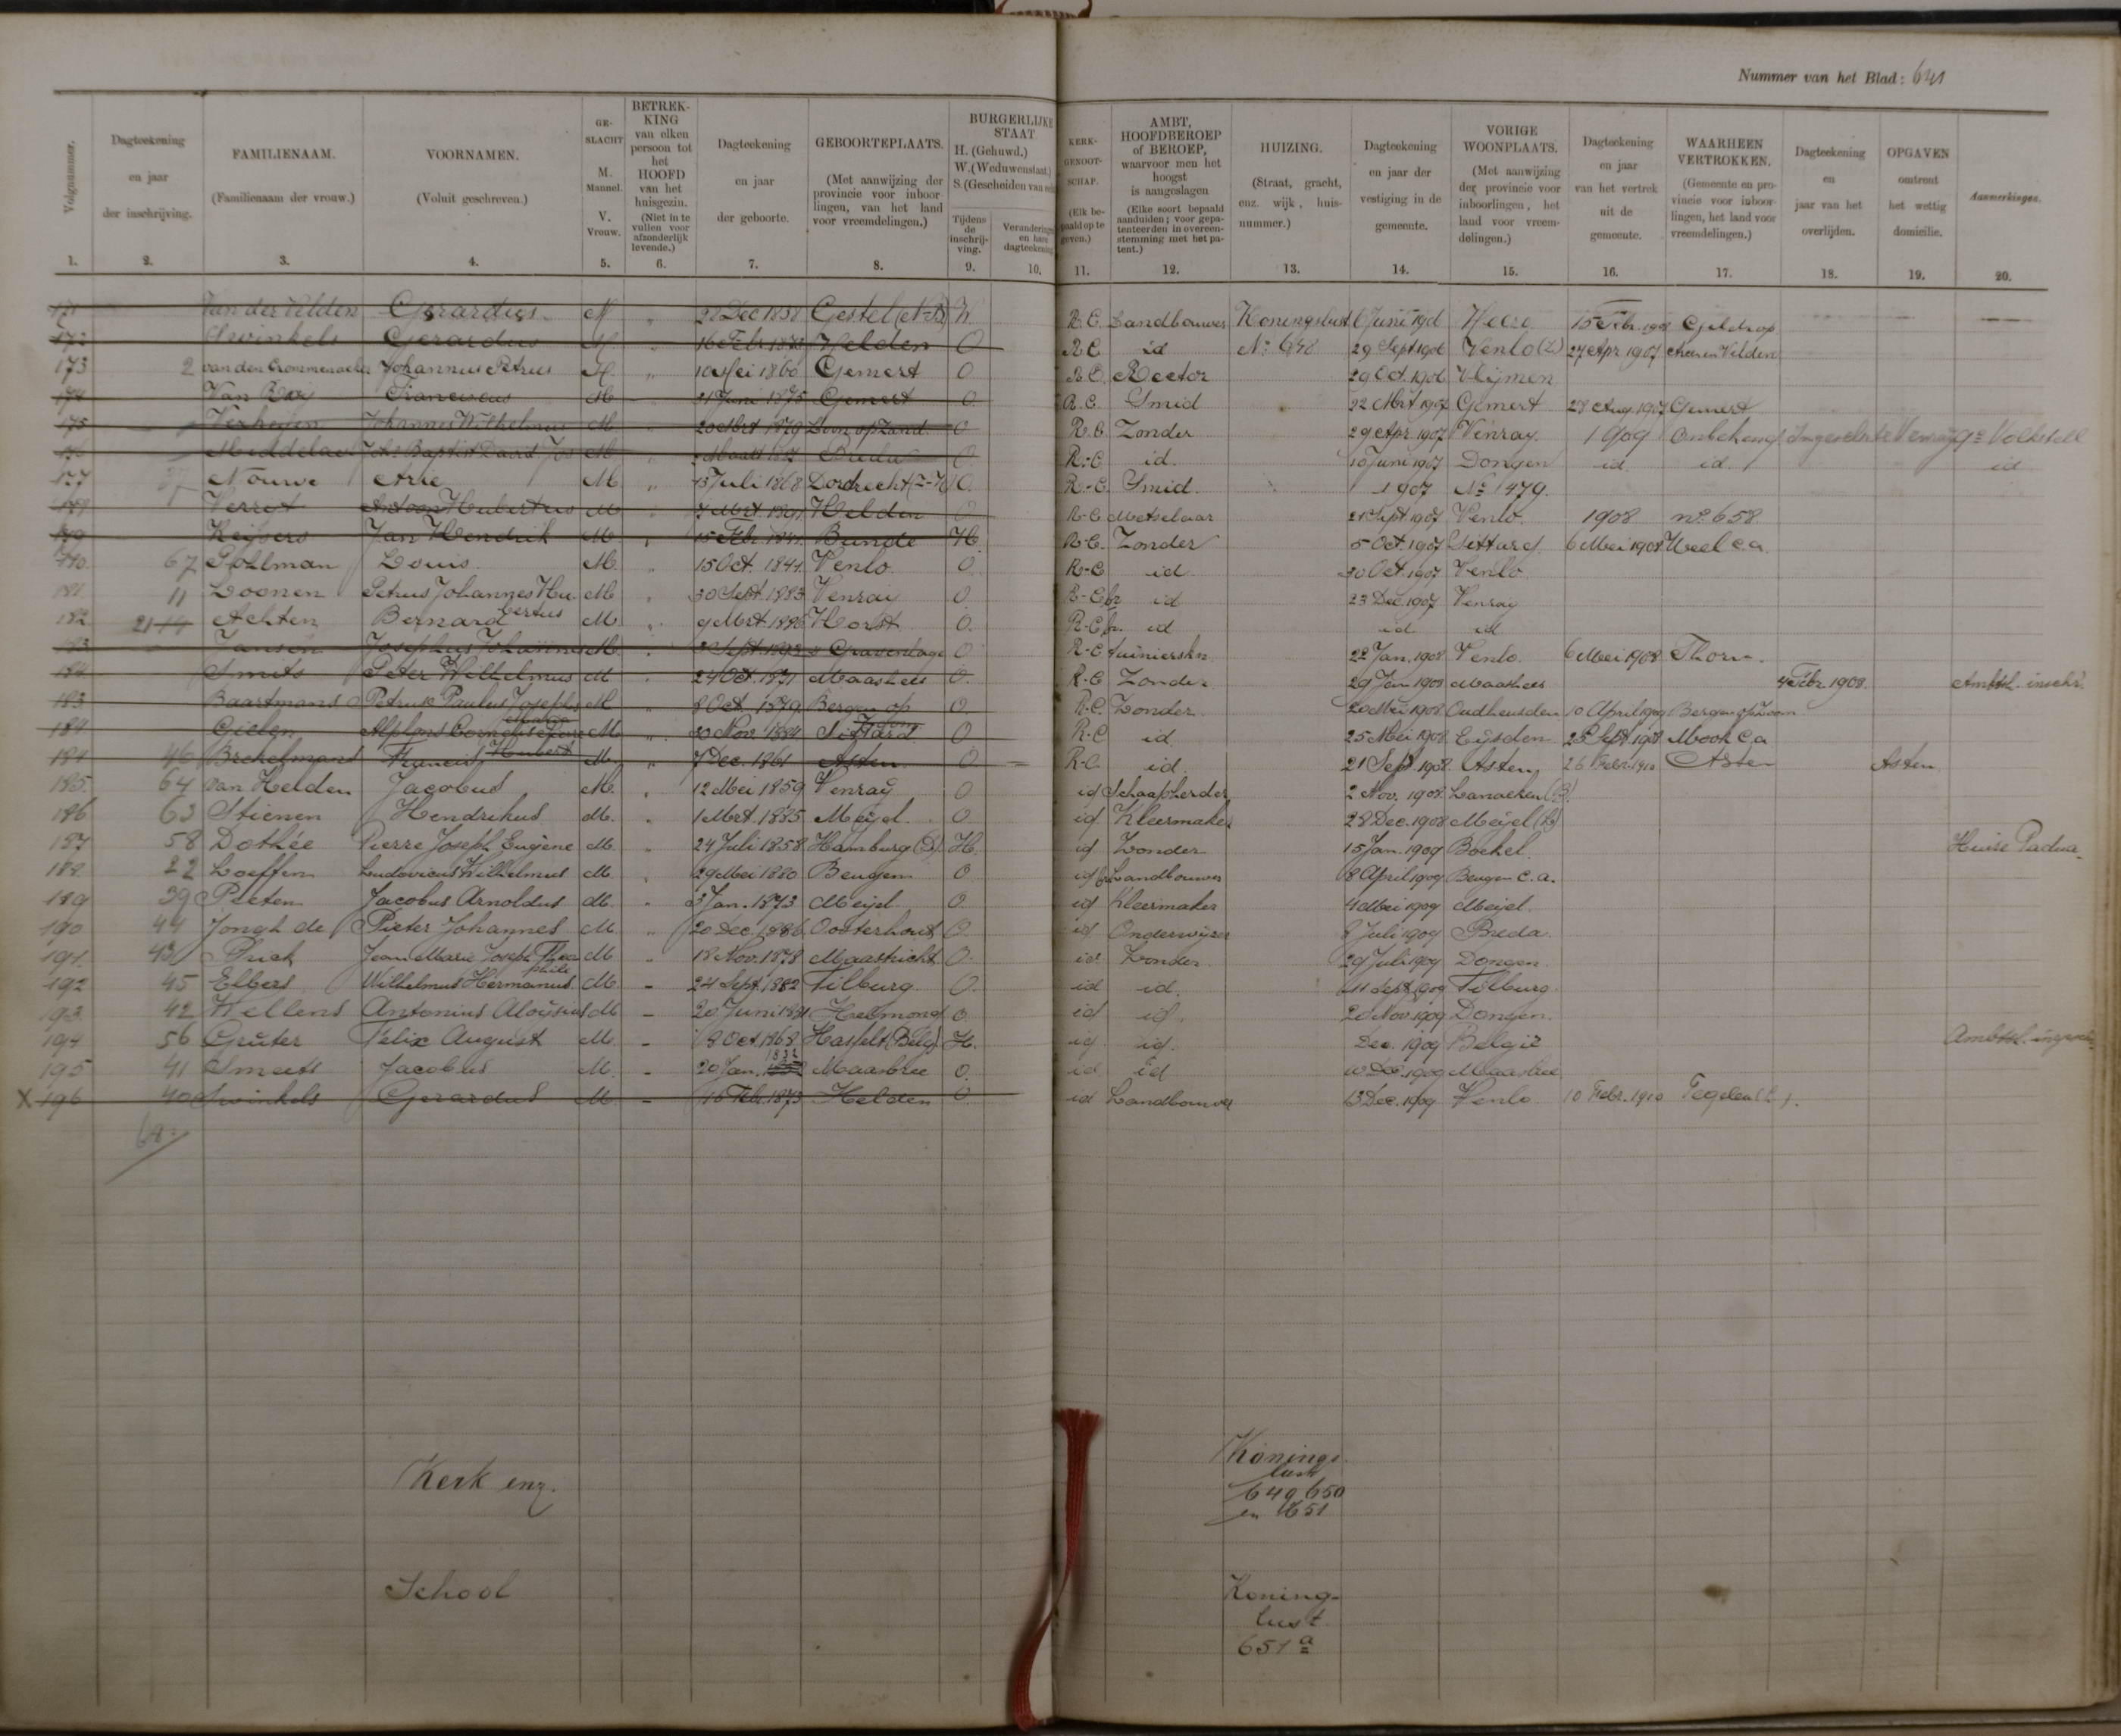 Nummer van het Blad: 641
Volgnummer. Dagteekening en jaar der inschrijving. FAMILIENAAM. (Familienaam der vrouw.) VOORNAMEN. (Voluit geschreven.) GESLACHT M. Mannel. V. Vrouw. BETREKKING van elken persoon tot het HOOFD van het huisgezin. (Niet in te vullen voor afzonderlijk levende.) Dagteekening en jaar der geboorte. GEBOORTEPLAATS. (Met aanwijzing der provincie voor inboorlingen, van het land voor vreemdelingen.) BURGERLIJKE STAAT H. (Gehuwd.) W. (Weduwenstaat.) S. (Gescheiden van Tijdens de inschrijving. Verandering en hare dagteekening
KERKGENOOTSCHAP. (Elk bepaald op te geven.) AMBT, HOOFDBEROEP of BEROEP, waarvoor men het hoogst is aangeslagen (Elke soort bepaald aanduiden; voor gepatenteerden in overeenstemming met het patent.) HUIZING. (Straat, gracht, enz. wijk, huisnummer.) Dagteekening en jaar der vestiging in de gemeente. VORIGE WOONPLAATS. (Met aanwijzing der provincie voor inboorlingen, het land voor vreemdelingen.) Dagteekening en jaar van het vertrek uit de gemeente. WAARHEEN VERTROKKEN. (Gemeente en provincie voor inboorlingen, het land voor vreemdelingen.) Dagteekening en jaar van het overlijden. OPGAVEN omtrent het wettig domicilie. Aanmerkingen.
1. 2. 3. 4. 5. 6. 7. 8. 9. 10. 11. 12. 13. 14. 15. 16. 17. 18. 19. 20.
171 Van der Velden Gerardus M „ 28 Dec 1858 Gestel (N-B) R.C. Landbouwer Koningslust 6 Juni 1906 Heeze 15 Febr. 1908 Geldrop
172 Swinkels Gerardus M „ 16 Febr 1873 Helden O R.C. id No. 648 29 Sept 1906 Venlo (L) 27 Apr 1907
173 2 van den Crommenacker Johannus Petrus M „ 10 Mei 1860 Gemert O R.C. Rector 29 Oct. 1906 Vlijmen
174 Franciscus M „ 21 Juni 1875 Gemert O. R.C. Smid 22 Mrt 1907 Gemert 28 Aug. 1907 Gemert
175 Verheijen Johannes Wilhelmus M. „ 20 Mrt 1879 Loon op Zand O R.C. Zonder 29 Apr. 1907 Venray 1909 Onbekend
176 Middelaer Johs Baptist David Jos M. „ Breda O. R.C. id. 10 Juni 1907 Dongen id. id. id
177 Nouwe Arie M. „ 13 Juli 1868 Dordrecht (Z-H) O. R-C. Smid. 1907 No 1479.
Verriet Antoon Hubertus M „ 7 Mrt. 1891 Helden O R-C Metselaar 21 Sept 1907 Venlo. 1908 no. 658
179 Keijsers Jan Hendrik M. „ 15 Febr. 1841 Bunde H. R-C. Zonder 5 Oct. 1907 Sittard 6 Mei 1908 Weel c.a.
67 Pohlman Louis M. „ 15 Oct. 1841 Venlo O R-C id 30 Oct. 1907 Venlo
181. 11 Loonen Petrus Johannes Hubertus M. „ 30 Sept. 1883 Venray O. R-C id 23 Dec. 1907 Venray
182. 21 Achten Bernard M. „ 9 Mrt. 1886 Horst O. R-C id id id
183 Jansen Josephus Johannes M. „ Sept. 1893 s Gravenhage O R-C tuiniersknt 22 Jan. 1908 Venlo. 6 Mei 1908 Thorn.
184 Smits Peter Wilhelmus M „ 24 Oct. 1871 Maashees O. R-C Zonder 29 Jan. 1908 Maashees 4 Febr. 1908 Ambtsh. inschr.
183 Baartmans Petrus Paulus Josephus M „ 8 Oct. 1879. Bergen op Zoom O. R.C. Zonder 20 Mei 1908 Oudheusden 10 April 1909 Bergen op Zoom
184. Gielen Alphons Cornelis M „ 20 Nov. 1884 Sittard O R-C id. 25 Mei 1908 Eijsden 28 Sept 1908 Mook c.a.
184 46 Brekelmans Francis Hubert M. „ 7 Dec. 1861 Asten O — R-C. id. 21 Sept 1908 Asten 26 Febr. 1910 Asten Asten
185. 64 van Helden Jacobus M. „ 12 Mei 1859 Venray O id Schaapherder 2 Nov. 1908 Lanaeken (B)
186 63 Stienen Hendrikus M. „ 1 Mrt. 1835 Meijel. O id Kleermaker 28 Dec. 1908 Meijel (L)
187 58 Dothée Pierre Joseph Eugène M. „ 24 Juli 1858 Hamburg (D) H. id Zonder 15 Jan. 1909 Boekel. Huize Padua.
188. 22 Loeffen Ludovicus Wilhelmus M. „ 29 Mei 1880 Beugen O id Landbouwer 8 April 1909 Beugen c.a.
189 39 Peeten Jacobus Arnoldus M. „ 3 Jan. 1873 Meijel O. id Kleermaker 4 Mei 1909 Meijel.
190 44 Jongh de Pieter Johannes M. „ 20 Dec. 1886 Oosterhout O. id Onderwijzer 8 Juli 1909 Breda.
191. 43 Jean Marie Joseph Theophile M „ 18 Nov. 1878 Maastricht O. id. Zonder 29 Juli 1909 Dongen.
192 45 Elbers Wilhelmus Hermanus M. – 24 Sept. 1882 Tilburg. O. id id. 11 Sept. 1909 Tilburg
193. 42 Wellens Antonius Aloÿsius M – 20 Juni Helmond O. id id. 20 Nov. 1909 Dongen.
194 56 Grüter Felix August M. – 18 Oct. 1868 Hasselt (Belg) H. id id. Dec. 1909 België Ambtsh.
195 41 Smeets Jacobus M. – 20 Jan. 1832 Maasbree O. id id 10 Dec. 1909 Maasbree
X 196 40 Swinkels Gerardus M. – 16 Feb. 1873 Helden O id Landbouwer 13 Dec. 1909 Venlo. 10 Febr. 1910 Tegelen (L).
Kerk enz. Konings lust 649 650 en 651
School Koning- lust 651 a